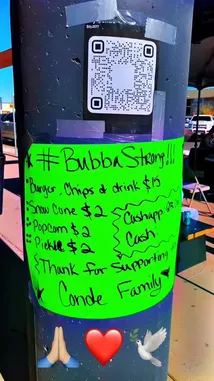 #BubbaStrong!!!
Burger, Chips & drink $15
Snow Cone $2
Popcorn $2
Pickle $2
Cashapp us or
Cash
Thank for Supporting
Conde Family